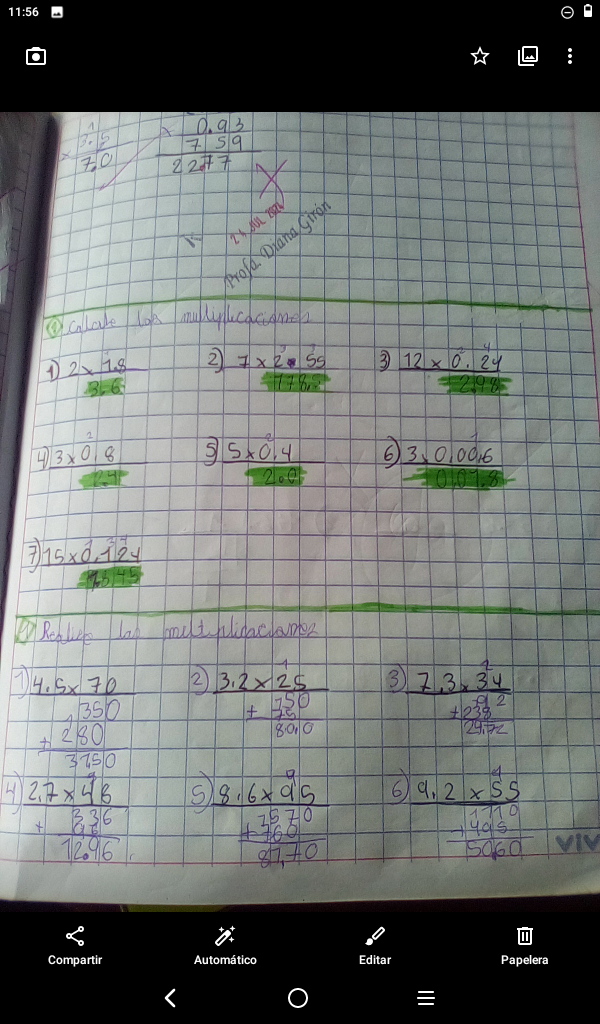 11:56
3.5
x
7.0
0.93
x
7 59
22.77
24 JUL 2024
Profa. Diana Girón
Calcule las multiplicaciones
1) 2 x 1.8
3.6
2) 7 x 2.55
3) 12 x 0.24
2.98
4) 3 x 0.8
2.4
5) 5 x 0.4
2.0
6) 3 x 0.00.6
0.01.8
7) 15 x 0.124
Realice las multiplicaciones
1) 4.5 x 70
350
+ 280
3150
2) 3.2 x 25
150
+ 75
80.0
3) 7.3 x 34
92
+ 238
24.72
4) 2.7 x 48
336
+ 96
12.96
5) 8.6 x 95
570
+ 760
81.70
6) 9.2 x 55
110
+ 495
50.60
VIV
Compartir
Automático
Editar
Papelera